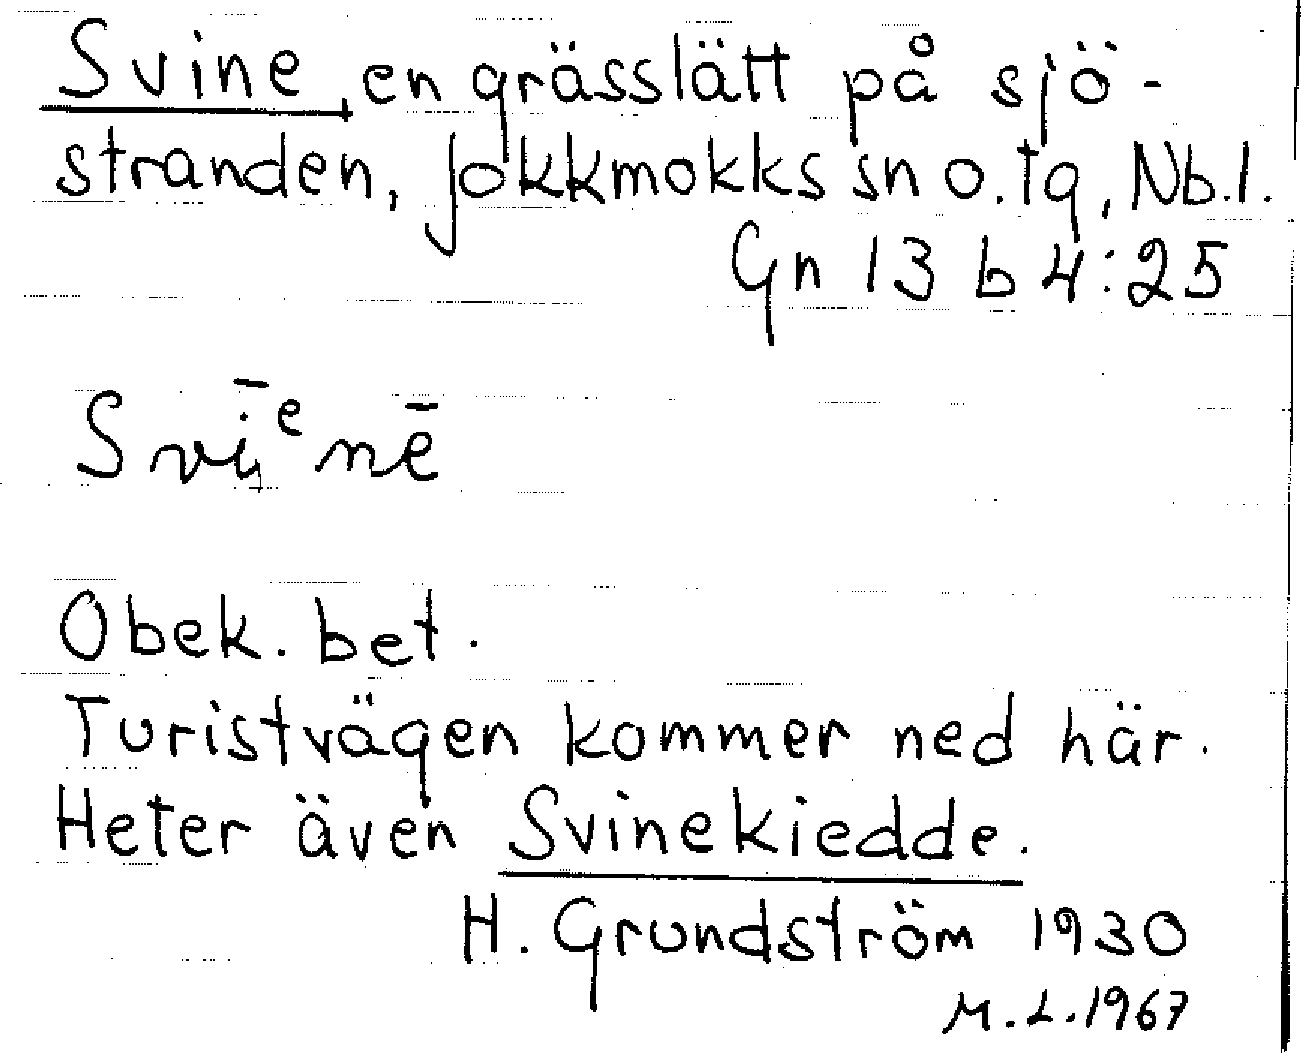 Svine, en grässlätt på sjö-
stranden, Jokkmokks sn o. tg, Nb.l.
Gn 13 b 4:25
Svī̢ᵉnē
Obek. bet.
Turistvägen kommer ned här.
Heter även Svinekiedde.
H. Grundström 1930
M.L. 1967